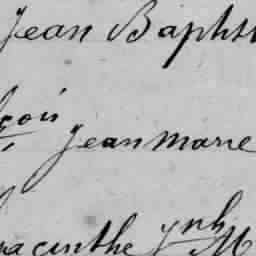 Jean Baptis
çois Jean marie
yacinthe